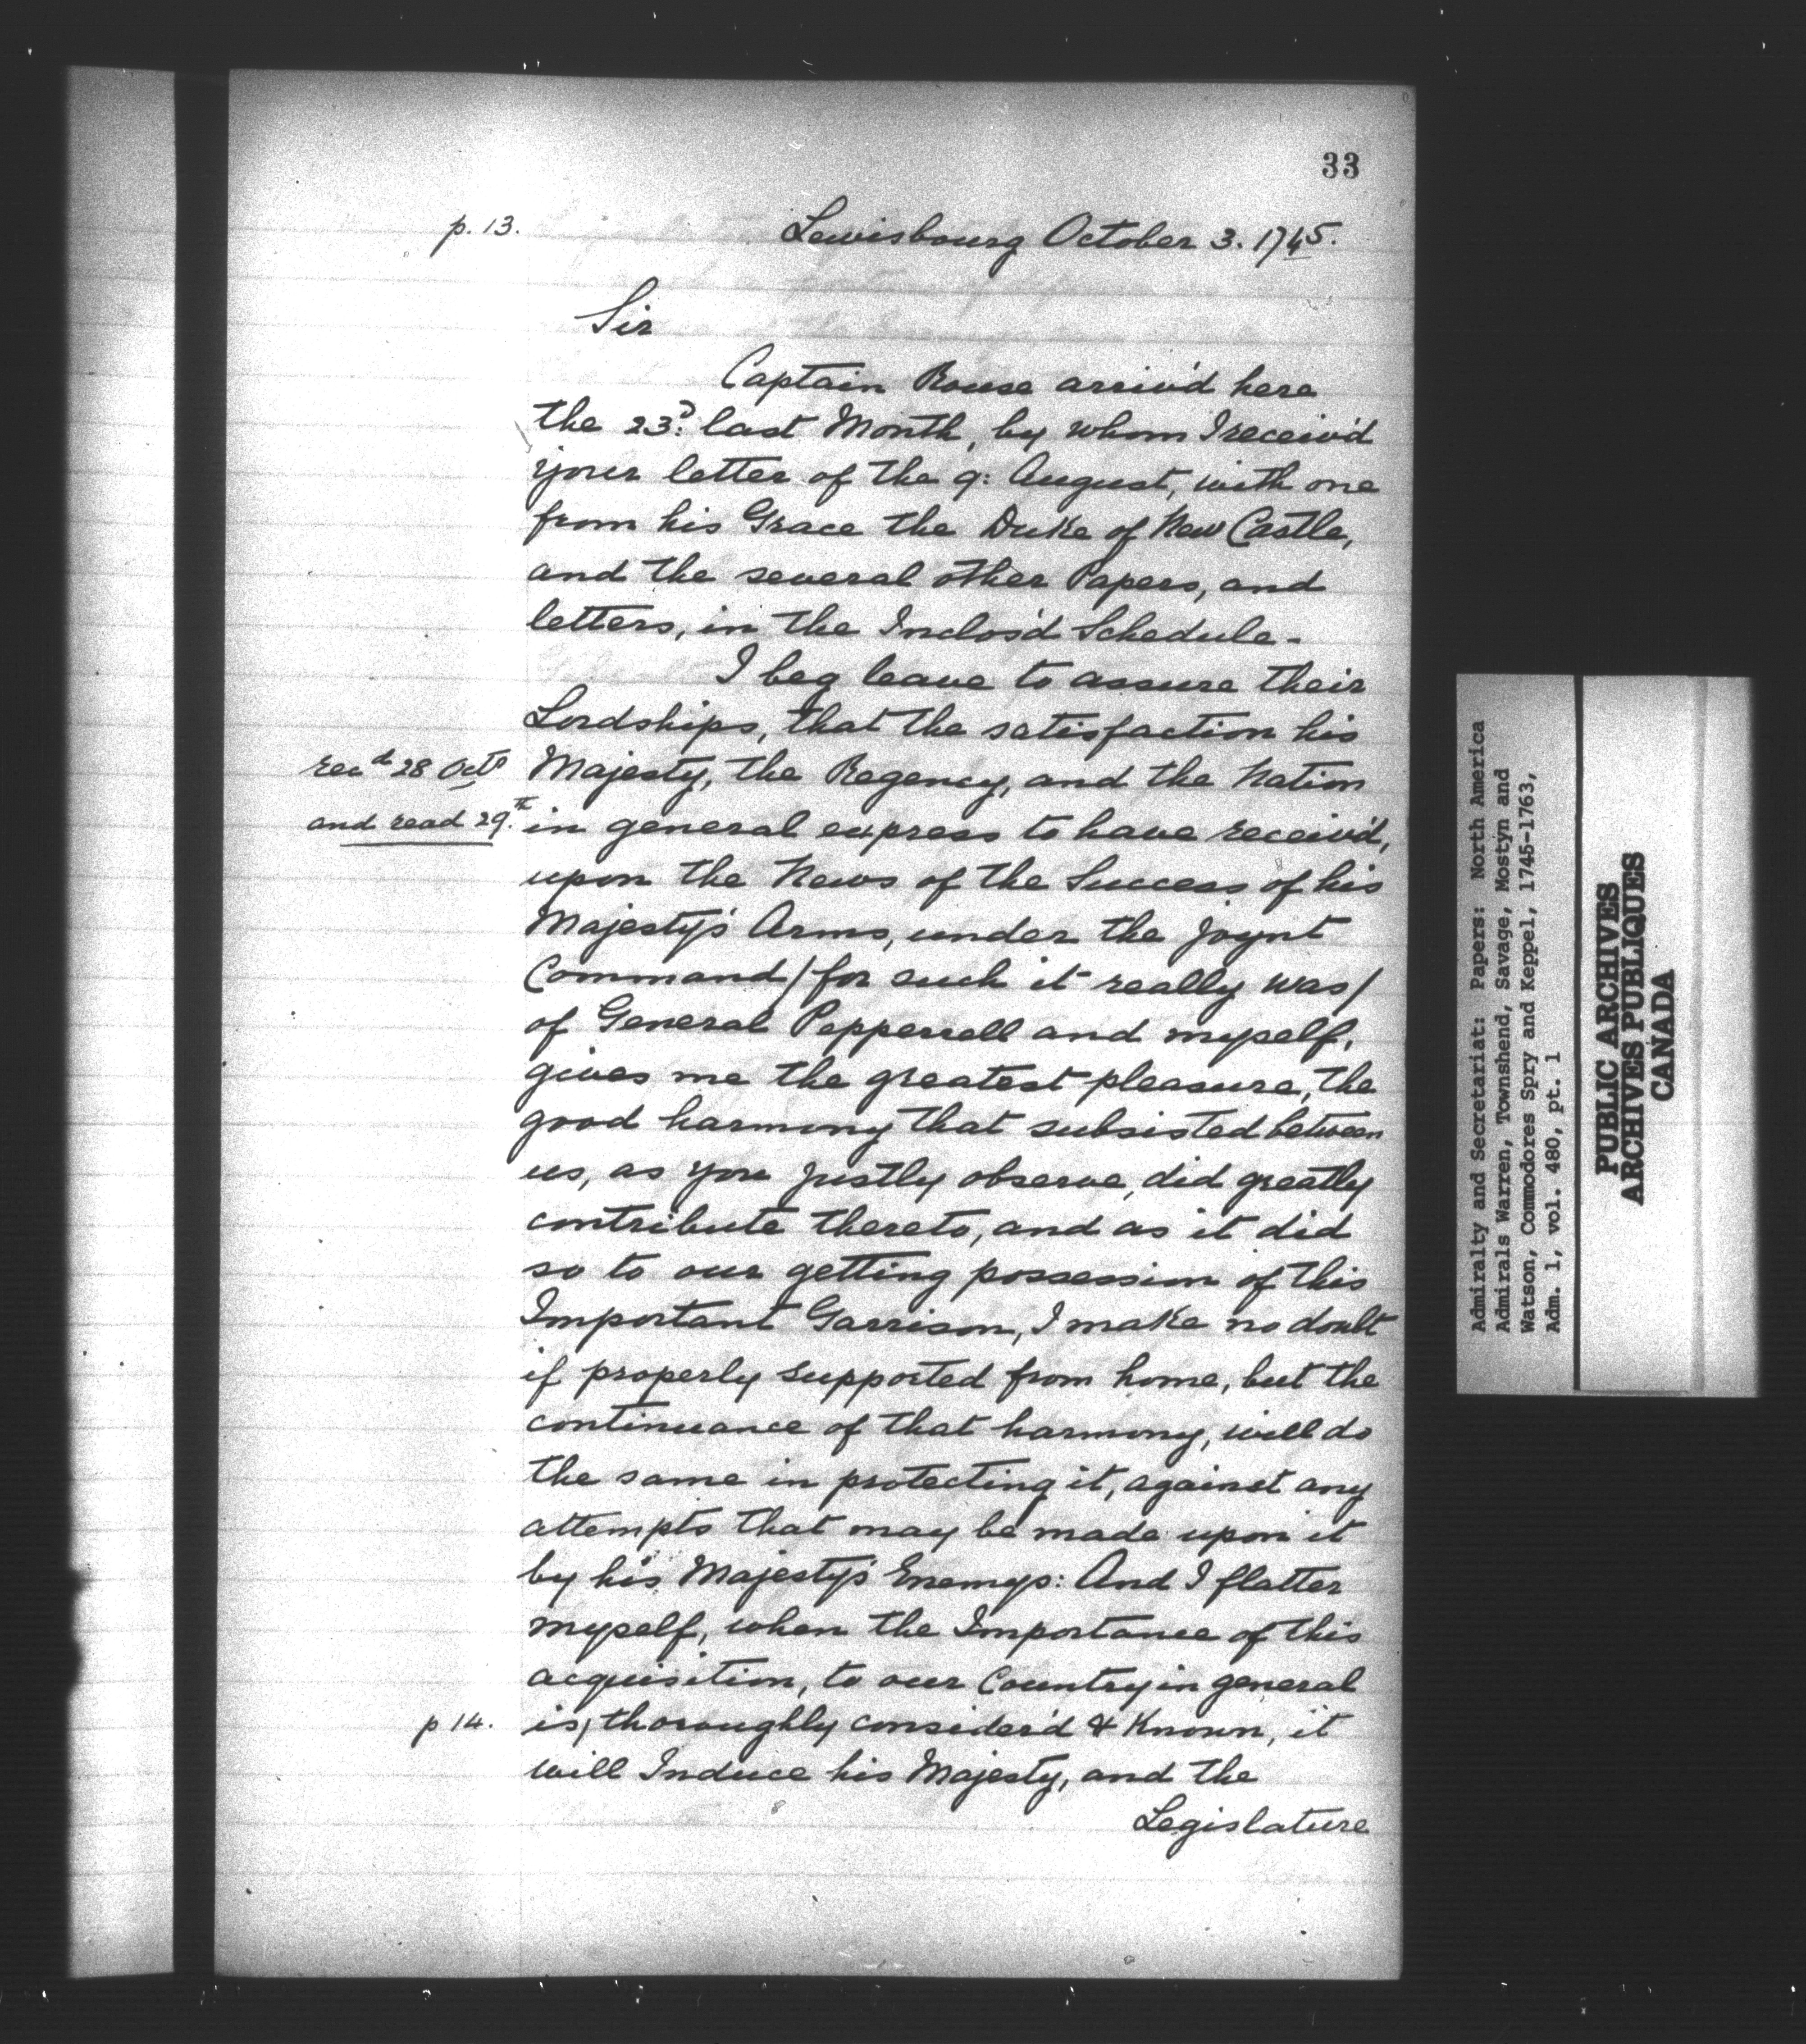 33
p. 13.
Lewisbourg October 3. 1745.
Sir
Captain Rouse arriv'd here
the 23.D last Month, by whom I receiv'd
your letter of the 9: August, with one
from his Grace the Duke of New Castle,
and the several other Papers, and
letters, in the Inclos'd Schedule.
I beg leave to assure their
Lordships, that the satisfaction his
recd 28 Octo
Majesty, the Regency, and the Nation
and read 29.th
in general express to have receiv'd,
upon the News of the Success of his
Majesty's Arms, under the joynt
Command / for such it really was /
of General Pepperrell and myself,
gives me the greatest pleasure, the
good harmony that subsisted between
us, as you justly observe, did greatly
contribute thereto, and as it did
so to our getting possession of this
Important Garrison, I make no doubt
if properly supported from home, but the
continuance of that harmony, will do
the same in protecting it, against any
attempts that may be made upon it
by his Majesty's Enemys: And I flatter
myself, when the Importance of this
acquisition, to our Country in general
p 14.
is, thoroughly consider'd & Known, it
will Induce his Majesty, and the
Legislature
Admiralty and Secretariat: Papers: North America
Admirals Warren, Townshend, Savage, Mostyn and
Watson, Commodores Spry and Keppel, 1745-1763,
Adm. 1, vol. 480, pt. 1
PUBLIC ARCHIVES
ARCHIVES PUBLIQUES
CANADA